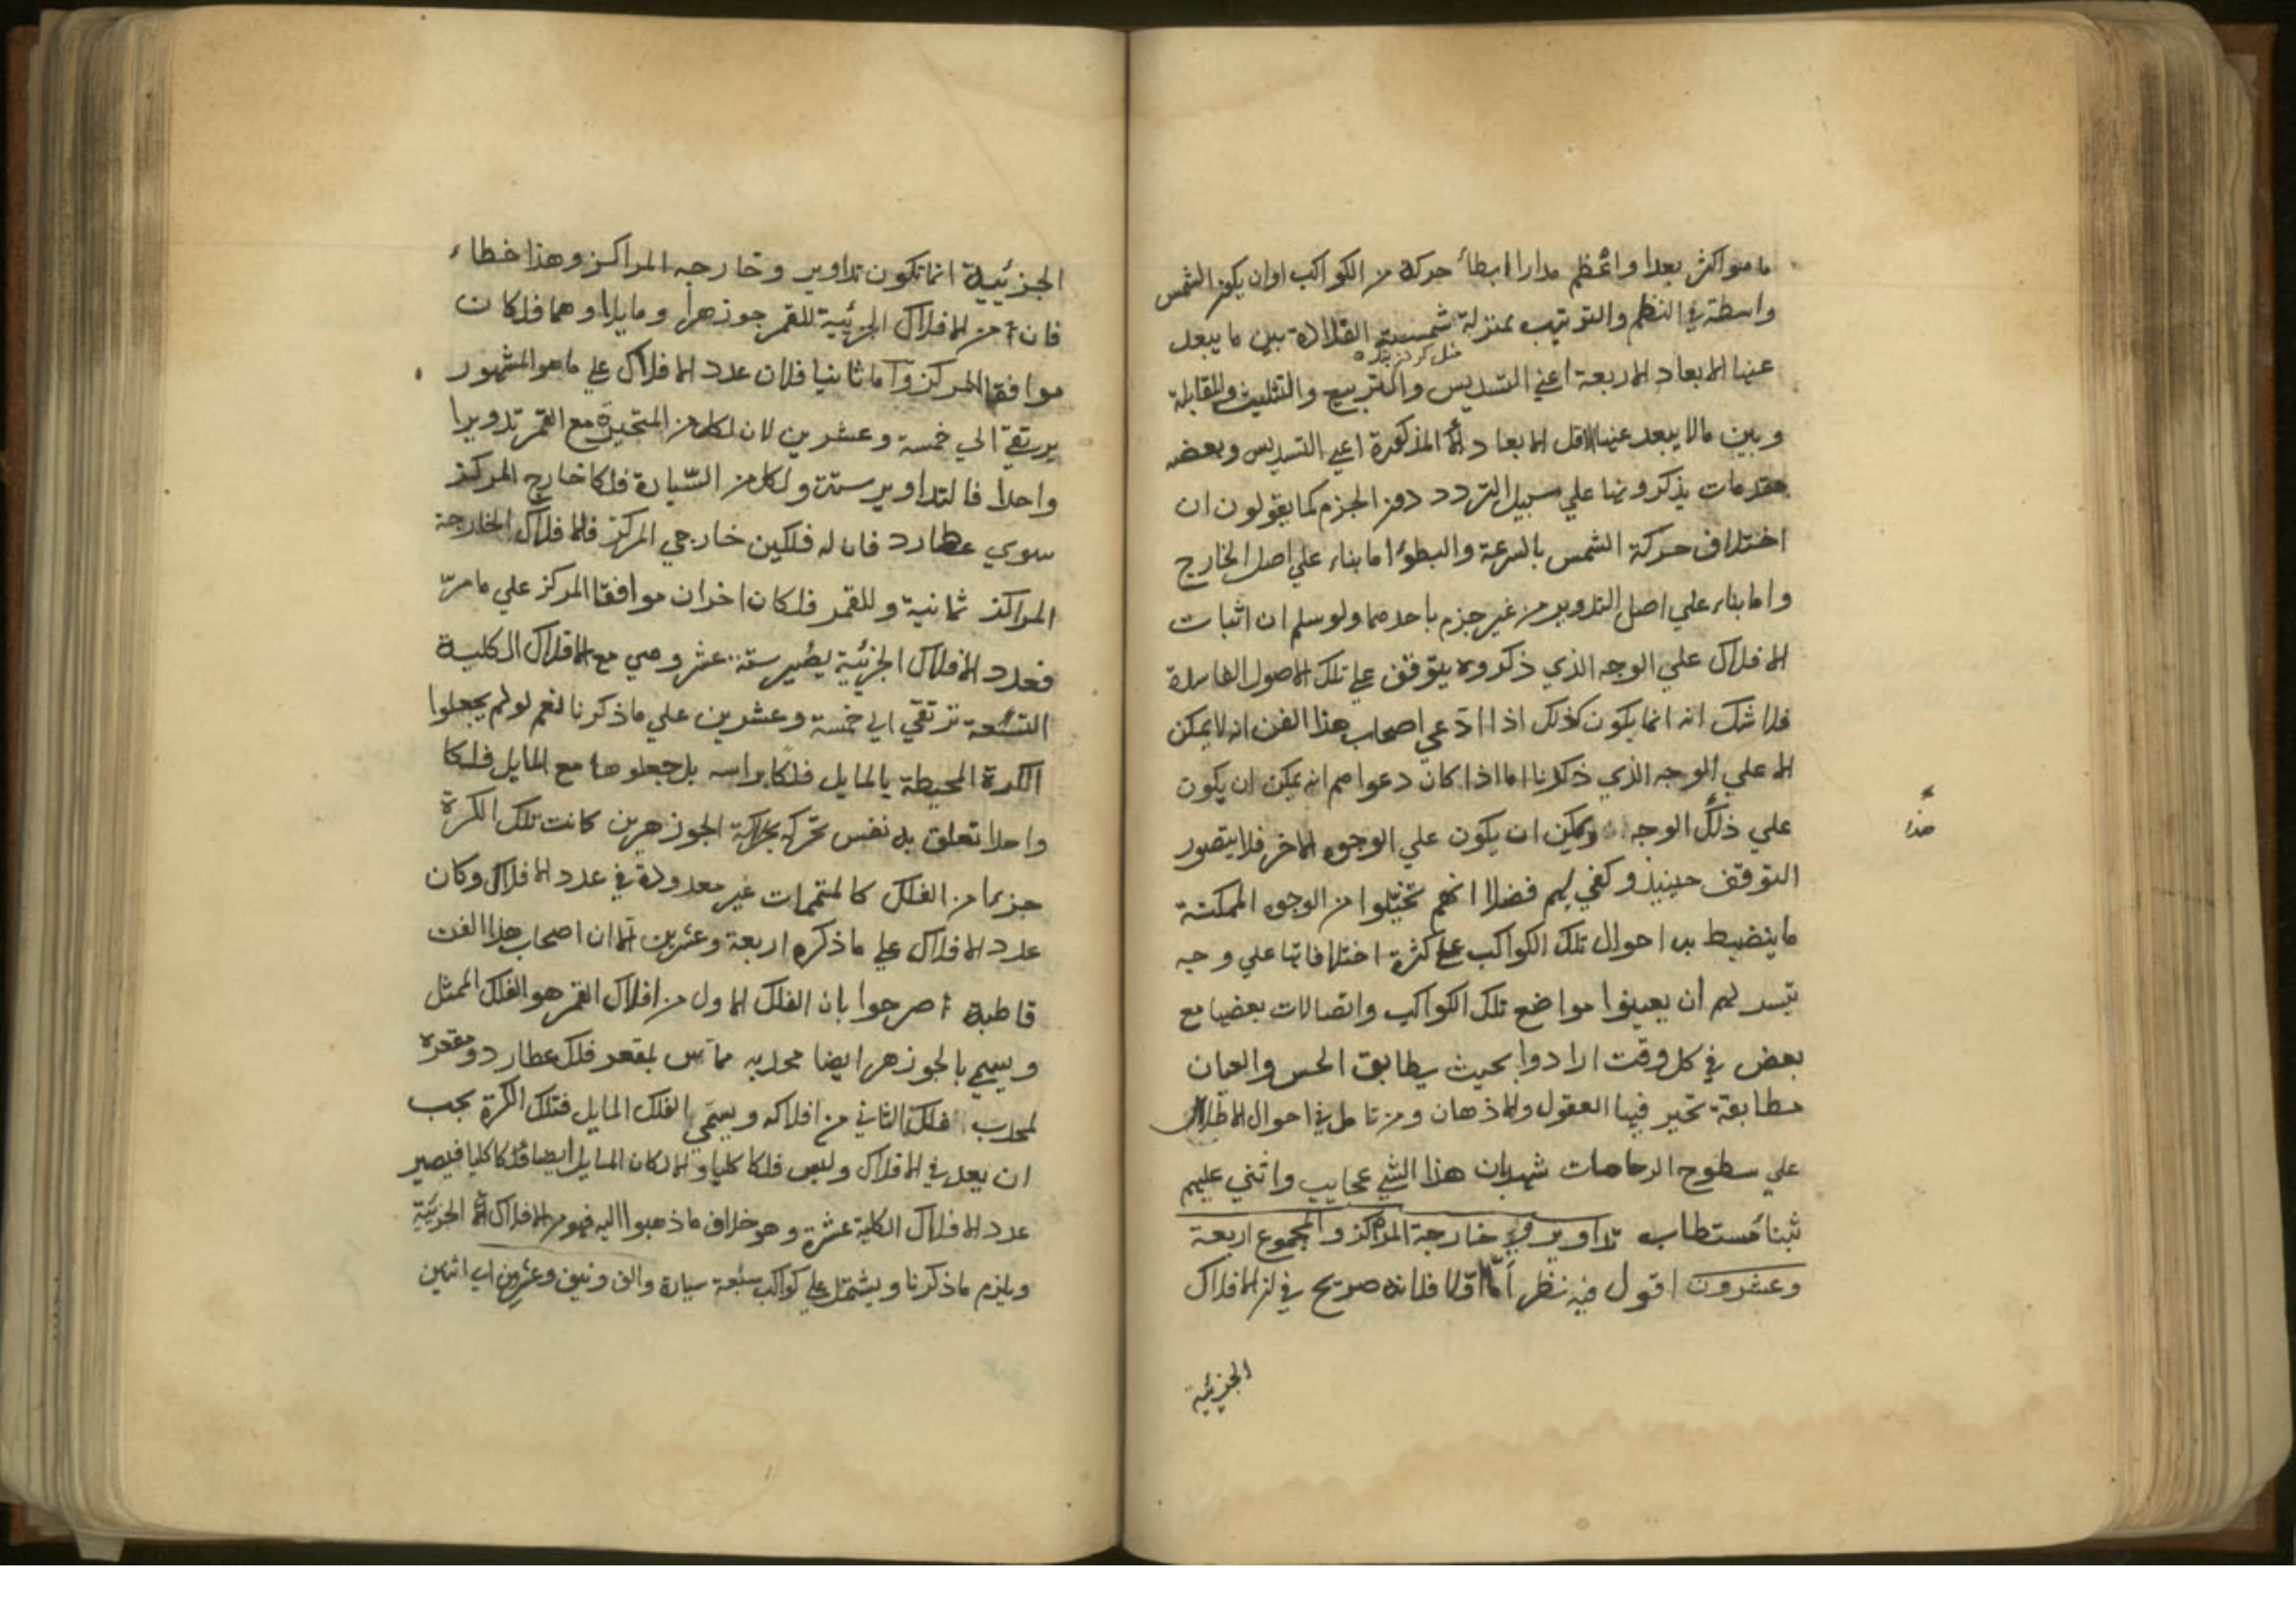 ما هو اكثر بعدا واعظم مدارا ابطأ حركة من الكواكب اوان يكون الشمس
واسطة في النظم والترتيب بمنزلة شمسة القلادة بين ما يبعد
عنها الابعاد الاربعة اعني التسديس والتربيع والتثليث والمقابلة
وبين مالا يبعد عنها الاقل الابعاد المذكورة اعني التسديس وبعضه
مقدمات يذكرونها علي سبيل التردد دون الجزم كما يقولون ان
اختلاف حركة الشمس بالسرعة والبطؤ اما بناء علي اصل الخارج
واما بناء علي اصل التدوير من غير جزم باحدهما ولو سلم ان اثبات
الافلاك علي الوجه الذي ذكروه يتوقف علي تلك الاصول الفاسدة
فلا شك انه انما يكون كذلك اذا ادعي اصحاب هذا الفن انه لا يمكن
الا علي الوجه الذي ذكرنا اما اذا كان دعواهم انه يمكن ان يكون
علي ذلك الوجه ويمكن ان يكون علي الوجوه الاخر فلا يتصور
التوقف حينيذ وكفي لهم فضلا انهم تخيلوا من الوجوه الممكنة
ما ينضبط به احوال تلك الكواكب علي كثرة اختلافاتها علي وجه
تيسر لهم ان يعينوا مواضع تلك الكواكب واتصالات بعضها مع
بعض في كل وقت ارادوا بحيث يطابق الحس والعيان
مطابقة تحير فيها العقول والاذهان ومن تامل في احوال الاظلال
علي سطوح الرخامات شهد بان هذا الشي عجايب واثني عليهم
ثبناء مستطاب تداوير خارجة المراكز والمجموع اربعة
وعشرون اقول فيه نظر اما اولا فلانه صريح في ان الافلاك
الجزئية
الجزئيية انما تكون تداوير وخارجه المراكز وهذا خطاء
فان من الافلاك الجزئية للقمر جوزهرا ومايلا وهما فلكان
موافقا المركز واما ثانيا فلان عدد الافلاك علي ما هو المشهور
يرتقي الي خمسة وعشرين لان لكل من المتحيرة مع القمر تدويرا
واحدا فالتداوير ستة ولكل من السيارة فلكا خارج المركز
سوي عطارد فان له فلكين خارجي المركز فالافلاك الخارجة
المراكز ثمانية وللقمر فلكان اخران موافقا المركز علي مامر
فعدد الافلاك الجزئية يصير ستة عشر وهي مع الافلاك الكلية
التسعة ترتقي الي خمسة وعشرين علي ماذكرنا نعم لو لم يجعلوا
الكرة المحيطة بالمايل فلكا براسه بل جعلوها مع المايل فلكا
واحدا تعلق به نفس تحركه بحركة الجوزهرين كانت تلك الكرة
جزءا من الفلك كالمتممات غير معدودة في عدد الافلاك وكان
عدد الافلاك علي ماذكره اربعة وعشرين الا ان اصحاب هذا الفن
قاطبة صرحوا بان الفلك الاول من افلاك القمر هو الفلك الممثل
ويسمي بالجوزهر ايضا محدبه مماس لمقعر فلك عطارد ومقعره
لمحدب فلكه الثاني من افلاكه ويسمي بالفلك المايل فتلك الكرة يجب
ان يعد في الافلاك وليس فلكا كليا والا لكان المايل ايضا فلكا كليا فيصير
عدد الافلاك الكلية عشرة وهو خلاف ماذهبوا اليه فهو من الافلاك الجزئية
ويلزم ماذكرنا ويشتمل علي كواكب سبعة سيارة والف ونيف وعشرين اي اثنين